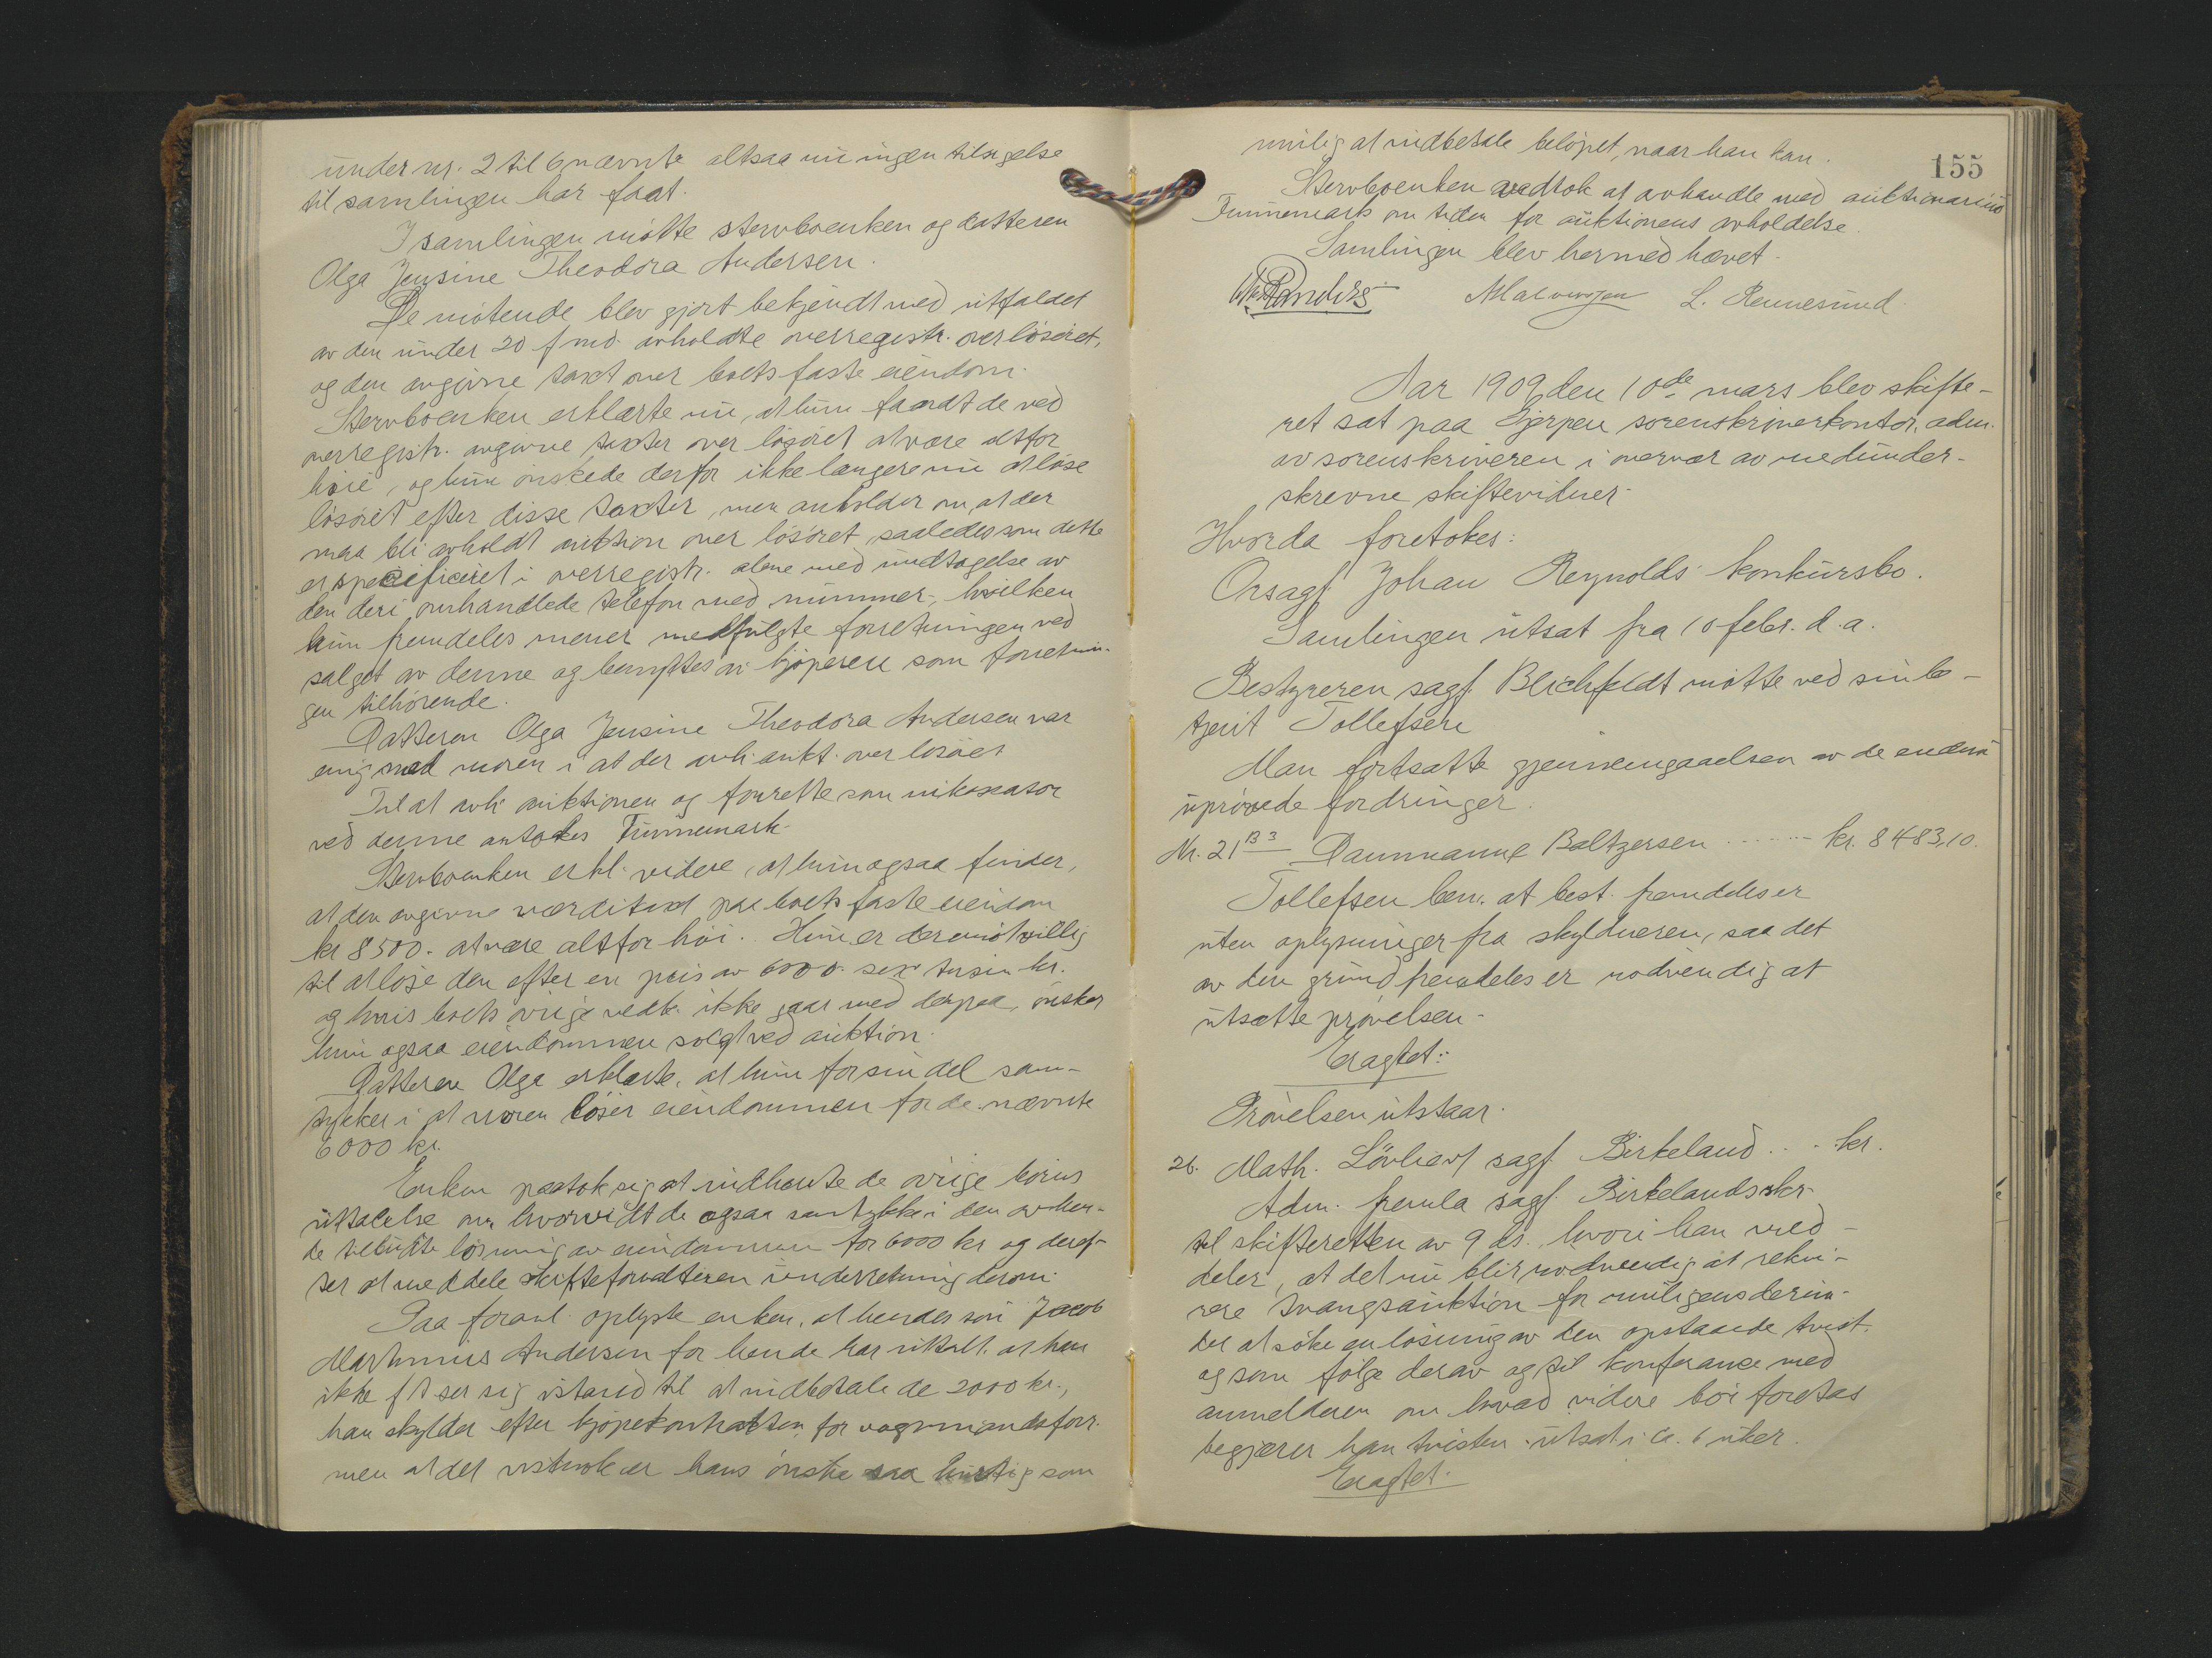 under nr. 2 til 6 nævnte altsaa nu ingen tilsigelse
til samlingen har faat.
I samlingen møtte stervboenken og datteren
Olga Jensine Theodora Andersen.
De møtende blev gjort bekjendt med utfaldet
av den under 20 f md. avholdte overregistr. over løsøret,
og den avgivne taxt over boets faste eiendom.
Stervboenken erklærte nu, at hun fandt de ved
overregistr. avgivne taxter over løsøret at være altfor
høie, og hun ønskede derfor ikke længere nu at løse
løsøret efter disse taxter, men anholder om, at der
maa bli avholdt auktion over løsøret, saaledes som dette
er specificeret i overregistr. alene med undtagelse av
den deri omhandlede telefon med nummer, hvilken
hun fremdeles mener medfulgte forretningen ved
salget av denne og benyttes av kjøperen som forretnin-
gen tilhørende.
Datteren Olga Jensine Theodora Andersen var
enig med moren i at der avh. aukt. over løsøret
Til at avh. auktionen og forrette som inkassator
ved denne antokes Finnemark.
Stervboenken erkl. videre, at hun ogsaa finder,
at den avgivne værditaxt paa boets faste eiendom
kr 8500. at være altfor høi. Hun er derimot villig
til at løse den efter en pris av 6000. sex tusin kr.
og hvis boets øvrige vedk. ikke gaar med derpaa, ønsker
hun ogsaa eiendommen solgt ved auktion.
Datteren Olga erklærte, at hun for sin del sam-
tykker i at moren løser eiendommen for de nævnte
6000 kr.
Enken paatok sig at indhente de øvrige
uttalelse om hvorvidt de ogsaa samtykker i den av hen-
de tilbudte løsning av eiendommen for 6000 kr og deref-
ter at meddele skifteforvalteren underretning derom.
Paa foranl. oplyste enken, at hendes søn Jacob
Martinius Andersen for hende har uttalt. at han
ikke ser sig istand til at indbetale de 2000 kr.,
han skylder efter kjøpekontrakten for vognmandsforr.
men at det nok er hans ønske saa hurtig som
155
mulig at indbetale beløpet, naar han kan.
Stervboenken vedtok at avhandle med auktionarius
Finnemark om tiden for auktionens avholdelse.
Samlingen blev hermed hævet.
L. Rennesund
Aar 1909 den 10de mars blev skifte-
ret sat paa Gjerpen sorenskriverkontor, adm.
av sorenskriveren i overvær av medunder-
skrevne skiftevidner.
Hvorda foretokes:
Orsagf Johan Reynolds konkursbo.
Samlingen utsat fra 10 febr. d.a.
Bestyreren sagf. Blichfeldt møtte ved sin be-
tjent Tollefsen
Man fortsatte gjennemgaaelsen av de endnu
uprøvede fordringer.
Nr. 21 B 3 Dammanns Baltzersen ...... kr. 8483,10.
Tollefsen bem. at best. fremdeles er
uten oplysninger fra skyldneren, saa det
av den grund fremdeles er nødvendig at
utsætte prøvelsen.
Eragtet:
Prøvelsen utstaar.
26. Math. Løvlie v/ sagf. Birkeland .... kr.
Adm. fremla sagf. Birkelands skr.
til skifteretten av 9 ds. hvori han med-
deler, at det nu blir nødvendig at rekvi-
rere tvangsauktion for muligens derun-
der at søke en løsning av den opstaaede tvist,
og som følge derav og til konferance med
anmelderen om hvad videre bør foretas
begjærer han tvisten utsat i ca. 6 uker.
Eragtet: